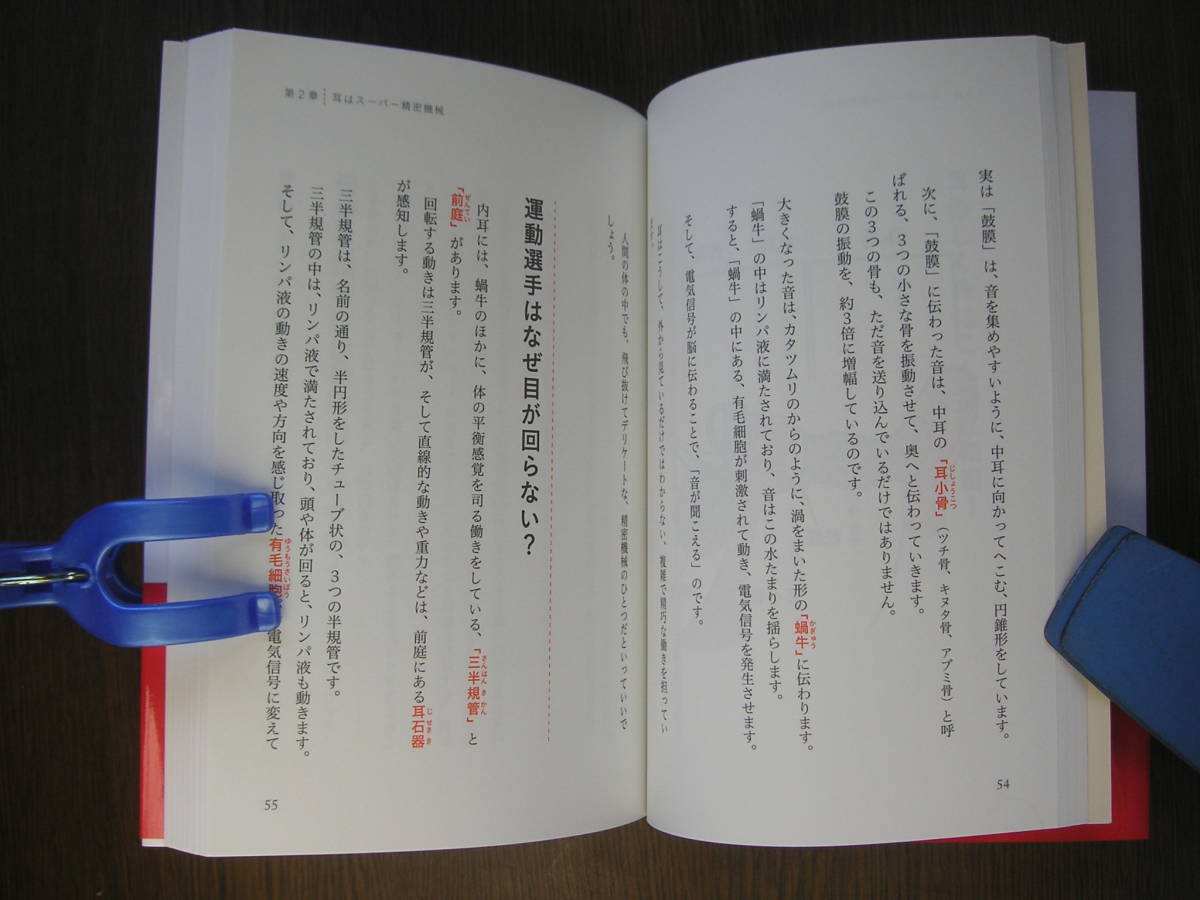 実は「鼓膜」は、音を集めやすいように、中耳に向かってへこむ、円錐形をしています。
次に、「鼓膜」に伝わった音は、中耳の「耳小骨」（ツチ骨、キヌタ骨、アブミ骨）と呼
じしょうこつ
ばれる、3つの小さな骨を振動させて、奥へと伝わっていきます。
この3つの骨も、ただ音を送り込んでいるだけではありません。
鼓膜の振動を、約3倍に増幅しているのです。
大きくなった音は、カタツムリのからのように、渦をまいた形の「蝸牛」に伝わります。
かぎゅう
「蝸牛」の中はリンパ液に満たされており、音はこの水たまりを揺らします。
すると、「蝸牛」の中にある、有毛細胞が刺激されて動き、電気信号を発生させます。
そして、電気信号が脳に伝わることで、「音が聞こえる」のです。
耳はこうして、外から見ているだけではわからない、複雑で精巧な働きを担ってい
ます。
人間の体の中でも、飛び抜けてデリケートな、精密機械のひとつだといっていいで
しょう。
54
第2章 耳はスーパー精密機械
運動選手はなぜ目が回らない？
内耳には、蝸牛のほかに、体の平衡感覚を司る働きをしている、「三半規管」と
さんはんきかん
「前庭」があります。
ぜんてい
回転する動きは三半規管が、そして直線的な動きや重力などは、前庭にある耳石器
じせきき
が感知します。
三半規管は、名前の通り、半円形をしたチューブ状の、3つの半規管です。
三半規管の中は、リンパ液で満たされており、頭や体が回ると、リンパ液も動きます。
そして、リンパ液の動きの速度や方向を感じ取った有毛細胞 電気信号に変えて
ゆうもうさいぼう
55